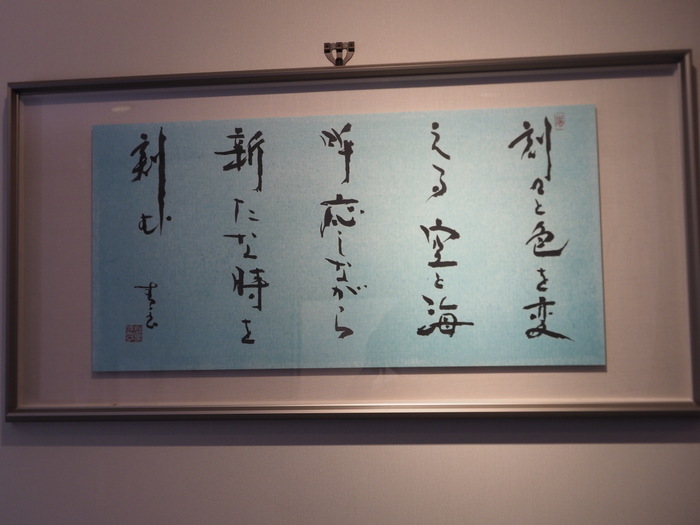 刻々と色を変
える空と海
呼応しながら
新たな時を
刻む